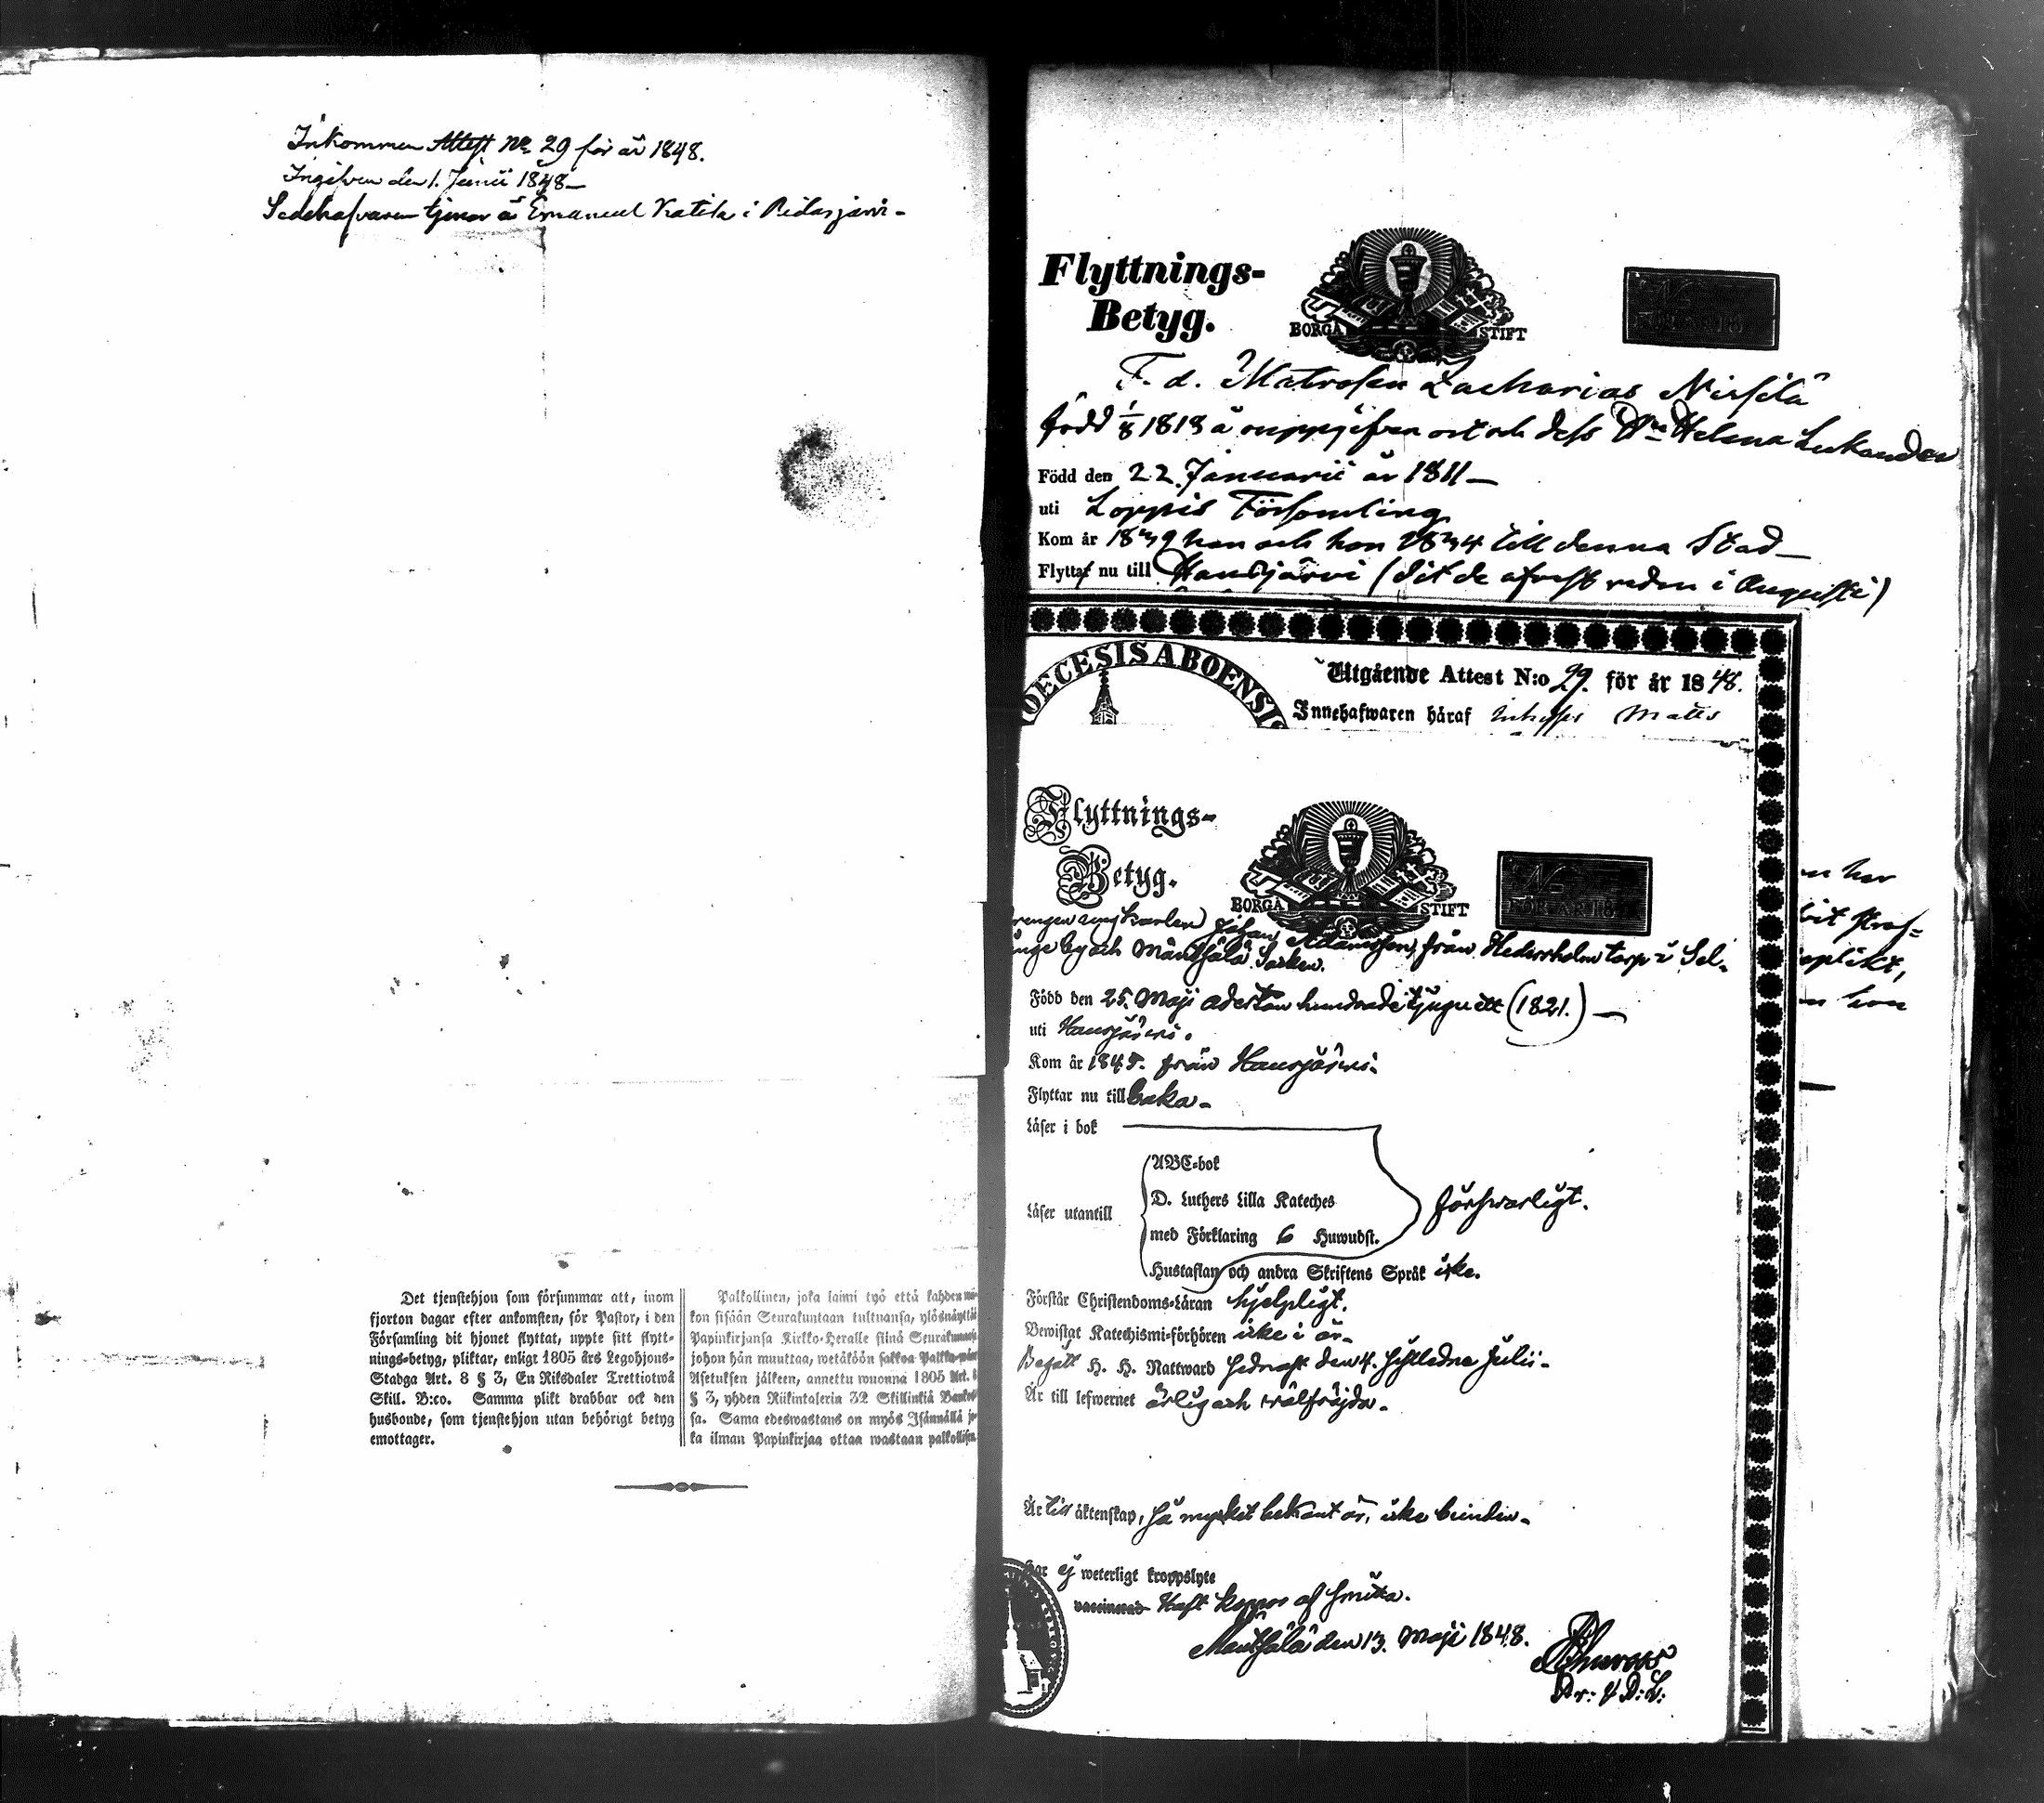 Inkommen Attest No 29 för år 1848.
Ingifven den 1. Junii 1848 —
Sedelhafvaren tjenar å Emanuel Katila i Ridasjärvi -
Det tjenstehjon som försummar att, inom
fjorton dagar efter ankomsten, för Pastor, i den
Församling dit hjonet flyttat, uppte sitt flytt-
nings-betyg, pliktar, enligt 1805 års Legohjons-
Stadga Art. 8 § 3, En Riksdaler Trettiotwå
Skill. B:co. Samma plikt drabbar ock den
husbonde, som tjenstehjon utan behörigt betyg
emottager.
Palkollinen, joka laimi lyö että kahden wii-
kon sisään Seurakuntaan tultuansa, ylösnäyttää
Papinkirjansa Kirkko-Herralle siinä Seurakunnasa
johon hän muuttaa, wetäköön sakkoa Palkko-wäen
Asetuksen jälkeen, annettu wuonna 1805 Art. 8
§ 3, yhden Riikintalerin 32 Skillinkiä Bankos-
sa. Sama edeswastaus on myös Isännällä jo-
ka ilman Papinkirjaa ottaa wastaan palkollisen
Flyttnings-
Betyg.
BORGÅ STIFT
F. d. Matrosen Zacharias
född 1/8 1813 å ouppgifven ort och dess Helena
Född den 22 Januarii år 1811 —
uti Loppis Församling
Kom år 1839 han och hon 1834 till denna Stad —
Flyttar nu till Hausjärvi (dit de afrest redan i Augusti)
DIOECESIS ABOENSIS
Utgående Attest N:o 29. för år 1848.
Innehafwaren häraf Inhyses Matts
Flyttnings-
Betyg.
BORGÅ STIFT
N:o
FÖR ÅR 18
Drengen ungkarlen Johan Adamsson, från Hedersholm torp i Sel-
änge by och Mäntsälä Socken.
Född den 25. Maji adertonhundradetjuguett (1821.) —
uti Hausjärvi.
Kom år 1845. från Hausjärvi.
Flyttar nu till baka -
Läser i bok
Läser utantill
ABC-bok
D. Luthers Lilla Kateches
med Förklaring 6 Huwudst.
Hustaflan och andra Skriftens Språk icke.
försvarligt.
Förstår Christendoms-Läran hjelpligt.
Bewistat Katechismi-förhören icke i år -
Begått H. H. Nattward sednast den 4. sistledne Julii -
Är till lefwernet ärlig och välfrejdad -
Är till äktenskap, så mycket bekant är, icke bunden -
Har ej weterligt kroppslyte
vaccinerad Haft koppor af smitta.
Mäntsälä den 13. Maji 1848.